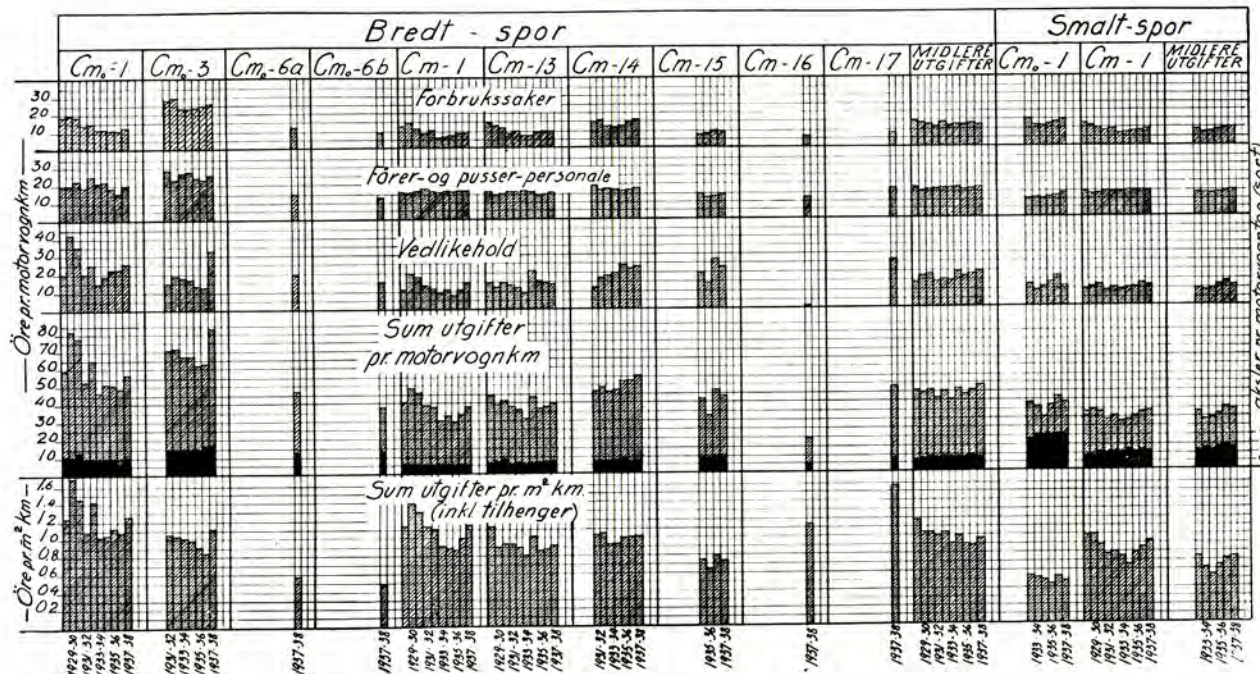 Bredt - spor
Smalt-spor
Cmₒ-1
Cmₒ-3
Cmₒ-6a
Cmₒ-6b
Cm-1
Cm-13
Cm-14
Cm-15
Cm-16
Cm-17
MIDLERE UTGIFTER
Cmₒ-1
Cm-1
MIDLERE UTGIFTER
Öre pr. motorvognkm
Forbrukssaker
30
20
10
Förer- og pusser-personale
30
20
10
Vedlikehold
40
30
20
10
Sum utgifter
pr. motorvognkm
80
70
60
50
40
30
20
10
Öre pr. m² km
Sum utgifter pr. m² km.
(inkl tilhenger)
1.6
1.4
1.2
1.0
0.8
0.6
0.4
0.2
1929-30
1931-32
1933-34
1935-36
1937-38
1931-32
1933-34
1935-36
1937-38
1937-38
1937-38
1929-30
1931-32
1933-34
1935-36
1937-38
1929-30
1931-32
1933-34
1935-36
1937-38
1931-32
1933-34
1935-36
1937-38
1935-36
1937-38
1937-38
1937-38
1929-30
1931-32
1933-34
1935-36
1937-38
1933-34
1935-36
1937-38
1929-30
1931-32
1933-34
1935-36
1937-38
1933-34
1935-36
1937-38
aksler pr. motorvogntog